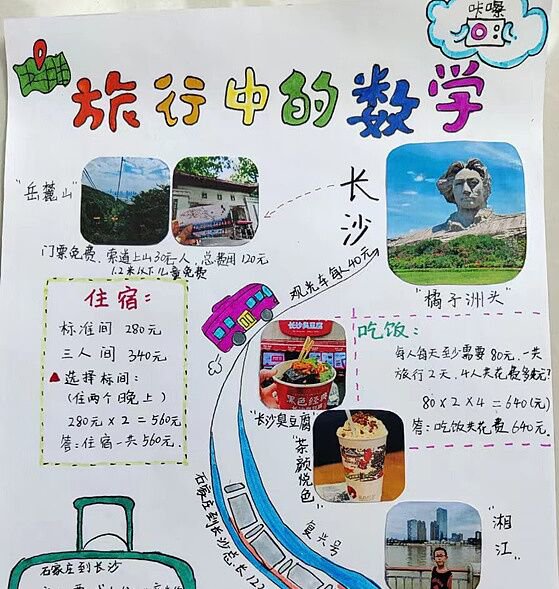 咔嚓
旅行中的数学
"岳麓山"
长沙
门票免费、索道上山30元一人，总费用120元
1.2米以下儿童免费
观光车每人40元
"橘子洲头"
住宿：
标准间 280元
三人间 340元
▲选择标间：
(住两个晚上)
280元×2=560元
答：住宿一共560元.
长沙臭豆腐
黑色经典
"长沙臭豆腐"
"茶颜悦色"
吃饭：
每人每天至少需要80元，一共
旅行2天，4人共花费多少元？
80×2×4=640(元)
答：吃饭共花费640元.
"湘江"
复兴号
石家庄到长沙总长122
石家庄到长沙